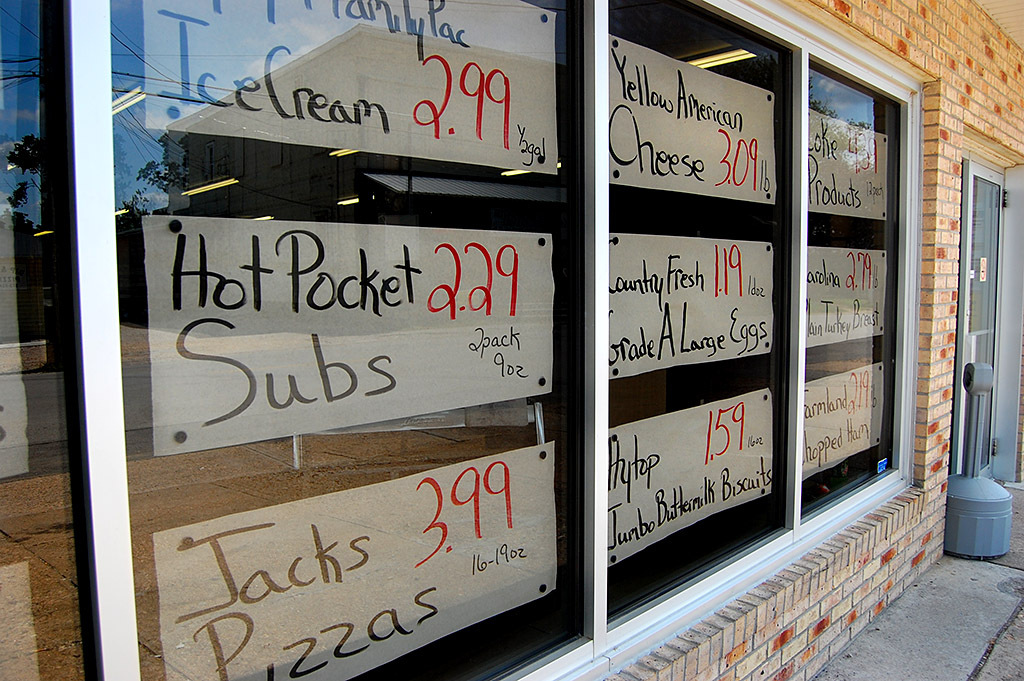 Family Pac
Ice Cream 2.99 ½gal
Hot Pocket 2.29
Subs 2pack
9oz
Jacks 3.99
16-19oz
Pizzas
Yellow American
Cheese 3.09 lb
Country Fresh 1.19 1doz
Grade A Large Eggs
Hytop 1.59 16oz
Jumbo Buttermilk Biscuits
Coke
Products 12pack
Carolina 2.79 lb
Plain Turkey Breast
Farmland 2.19 lb
Chopped Ham